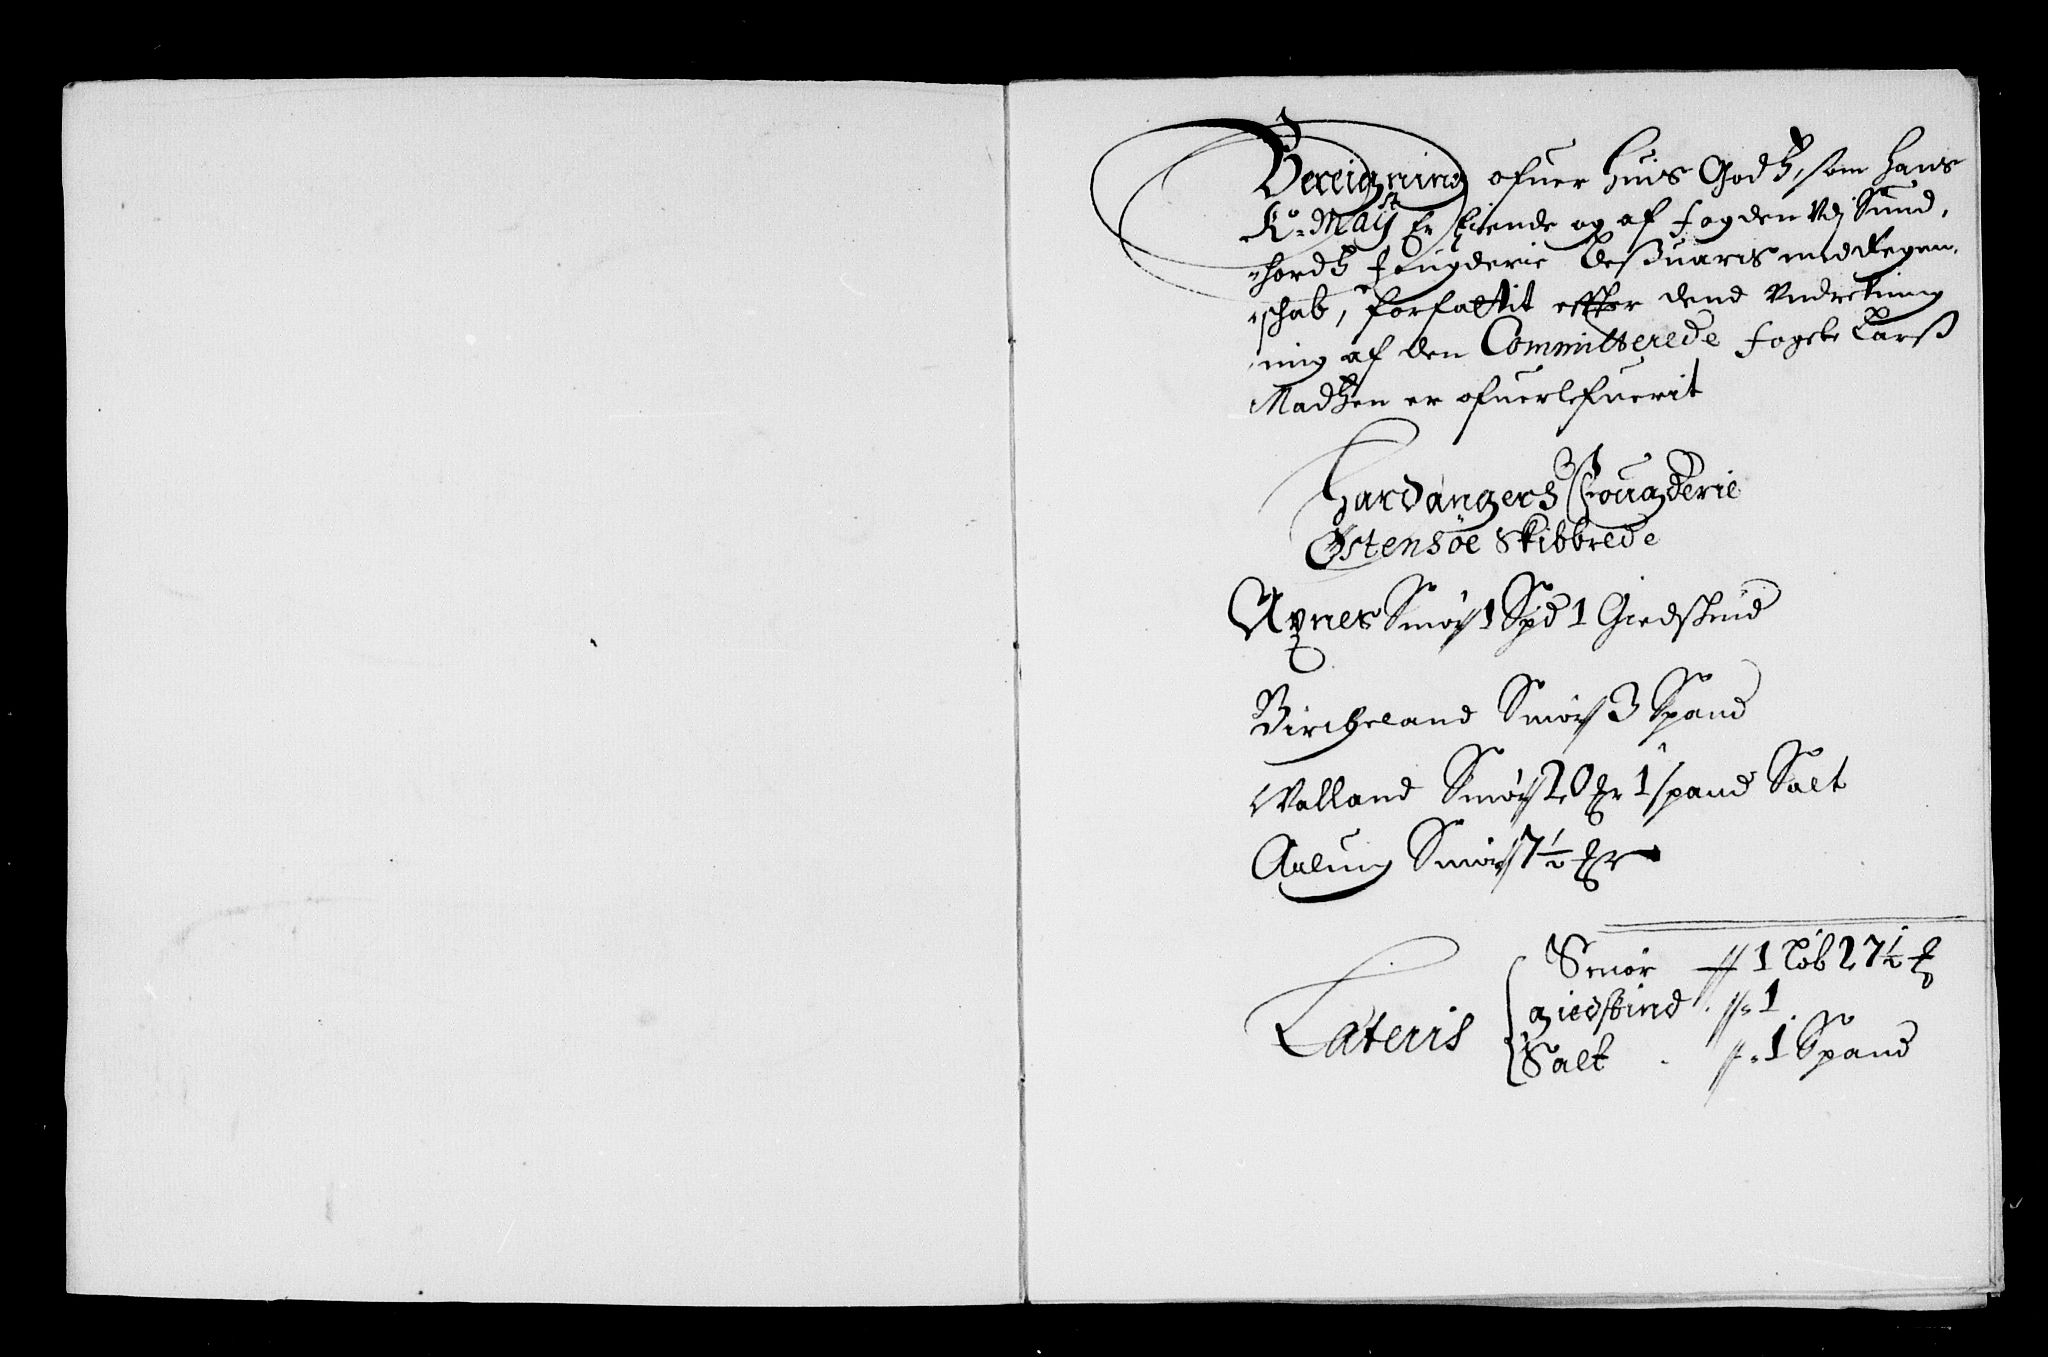 Bereigning ofuer huis Godtz, som hans
K: May:st Er eyende og af fogden Udj Sund,
hordtz fougderie besuaris med Regen,
schab, forfattit effter dend Underetning
ning af den Committerede fogede Larss
Madtzen er ofuerlefuerit
Hardangers Fougderie
Østensöe Skibbrede
Axnes Smör 1 Spd 1 Giedskind
Bircheland Smör 3 Spand
Walland Smör 20 mr 1 spand Salt
Aalung Smör 7½ mr
Lateris
Smör 1 Löb 27½ mr
giedskind 1
Salt 1 Spand